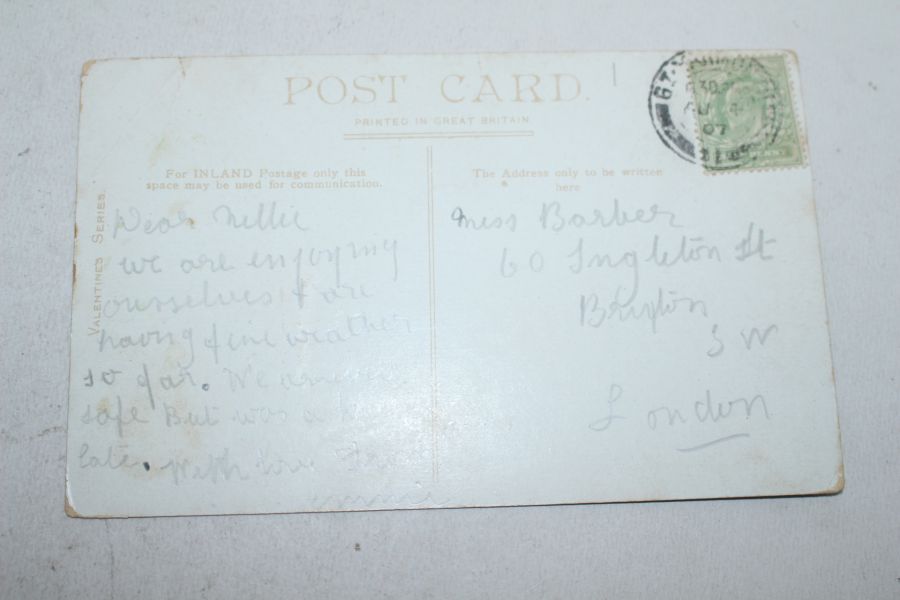 POST CARD.
PRINTED IN GREAT BRITAIN.
For INLAND Postage only this
space may be used for communication.
The Address only to be written
here
VALENTINES SERIES
Dear Nellie
we are enjoying
ourselves & are
having fine weather
so far. We arrived
safe But was a
late. With love
Miss Barber
60 Ingleton St
Brixton
S W
London
GT.
30
AU
07
PENNY